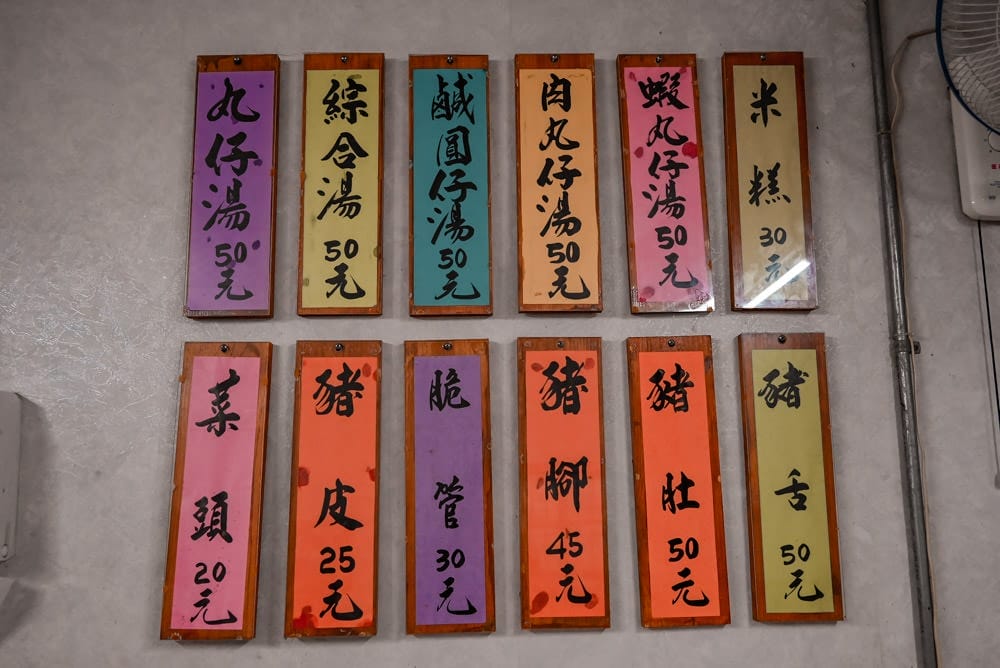 米糕30元
蝦丸仔湯50元
肉丸仔湯50元
鹹圓仔湯50元
綜合湯50元
丸仔湯50元
豬舌50元
豬肚50元
豬腳45元
脆管30元
豬皮25元
菜頭20元